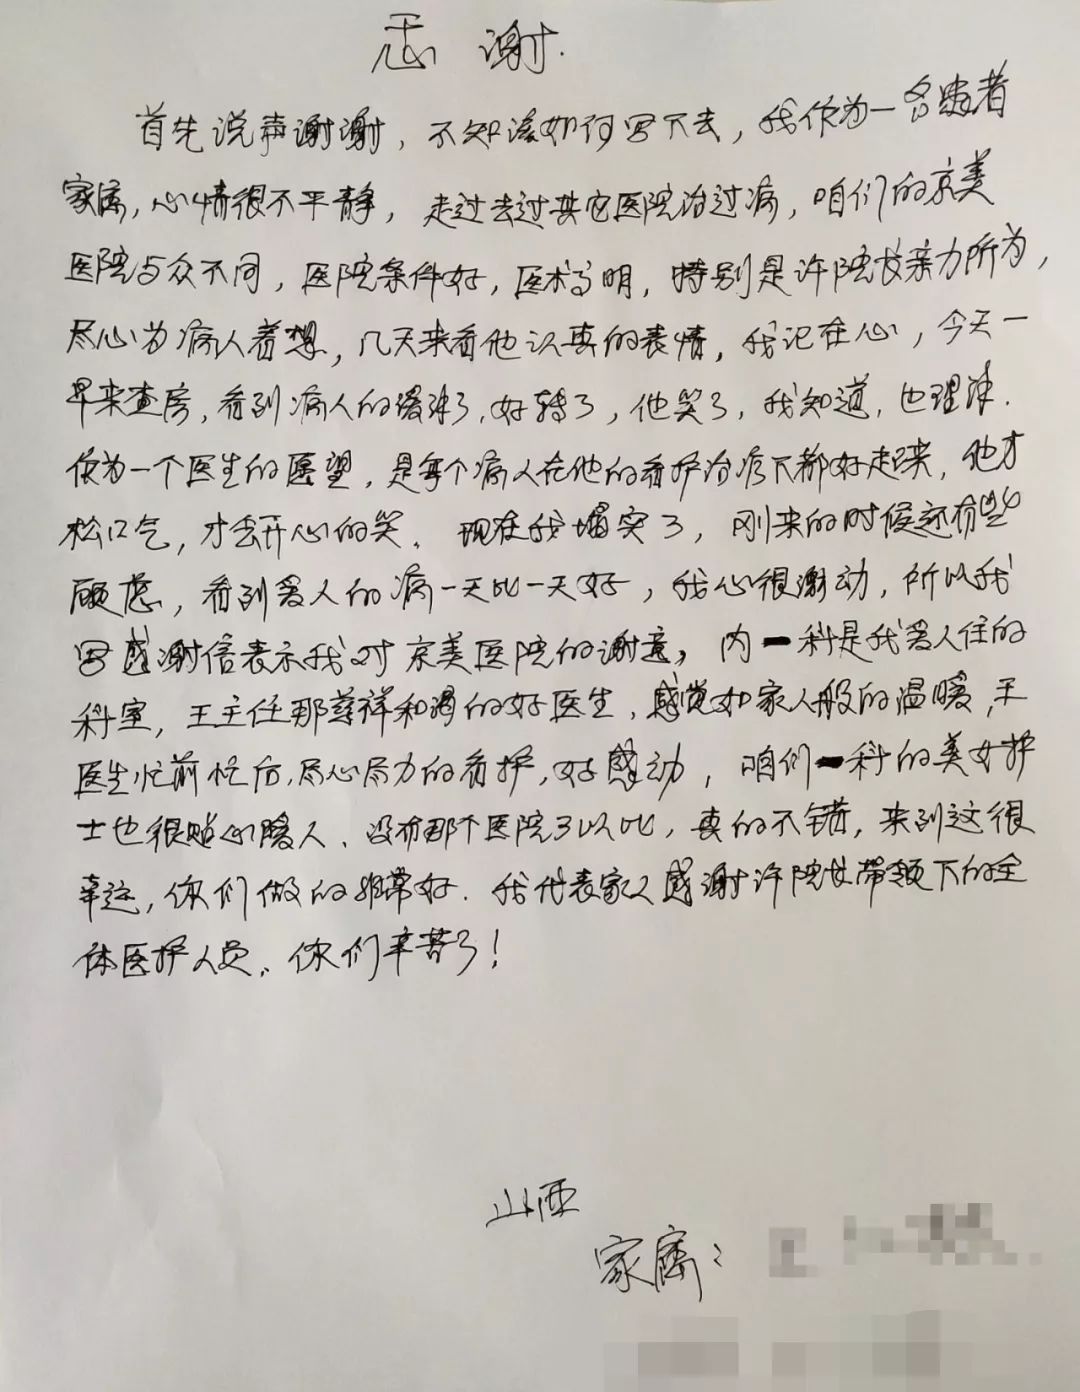 感谢.
首先说声谢谢，不知该如何写下去，我作为一名患者
家属，心情很不平静，走过去过其它医院治过病，咱们的京美
医院与众不同，医院条件好，医术高明，特别是许院长亲力所为，
尽心为病人着想，几天来看他认真的表情，我记在心，今天一
早来查房，看到病人的 好转了，他笑了，我知道，也理详.
做为一个医生的愿望，是每个病人在他的看护治疗下都好起来，他才
松口气，才会开心的笑、现在我塌实了，刚来的时候还有些
顾虑，看到爱人的病一天比一天好，我心很谢动，所以我
写感谢信表示我对京美医院的谢意，内一科是我爱人住的
科室，王主任那慈祥和谒的好医生，感觉如家人般的温暖，王
医生忙前忙后，尽心尽力的看护，好感动，咱们一科的美女护
士也很贴心暖人、没有那个医院了以比，真的不错，来到这很
幸运，你们做的非常好．我代表家人感谢许院长带领下的全
体医护人员、你们辛苦了！
山西
家属：